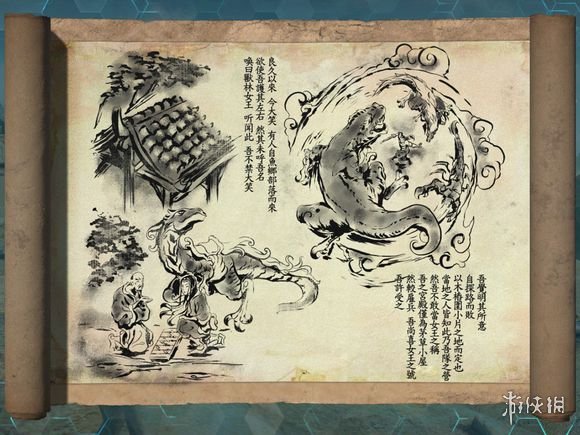 良久以來 今大笑 有人自魚鄉部落而來
欲使吾護其左右 然其未呼吾名
喚曰獸林女王 听聞此 吾不禁大笑
吾覺明其所意
自探路而敗
以木樁圍小片之地而定也
當地之人皆知此乃吾隊之營
然吾不敢當女王之稱
吾之宮殿僅為茅草小屋
然較雇兵 吾尚喜女王之號
吾許受之
游侠网